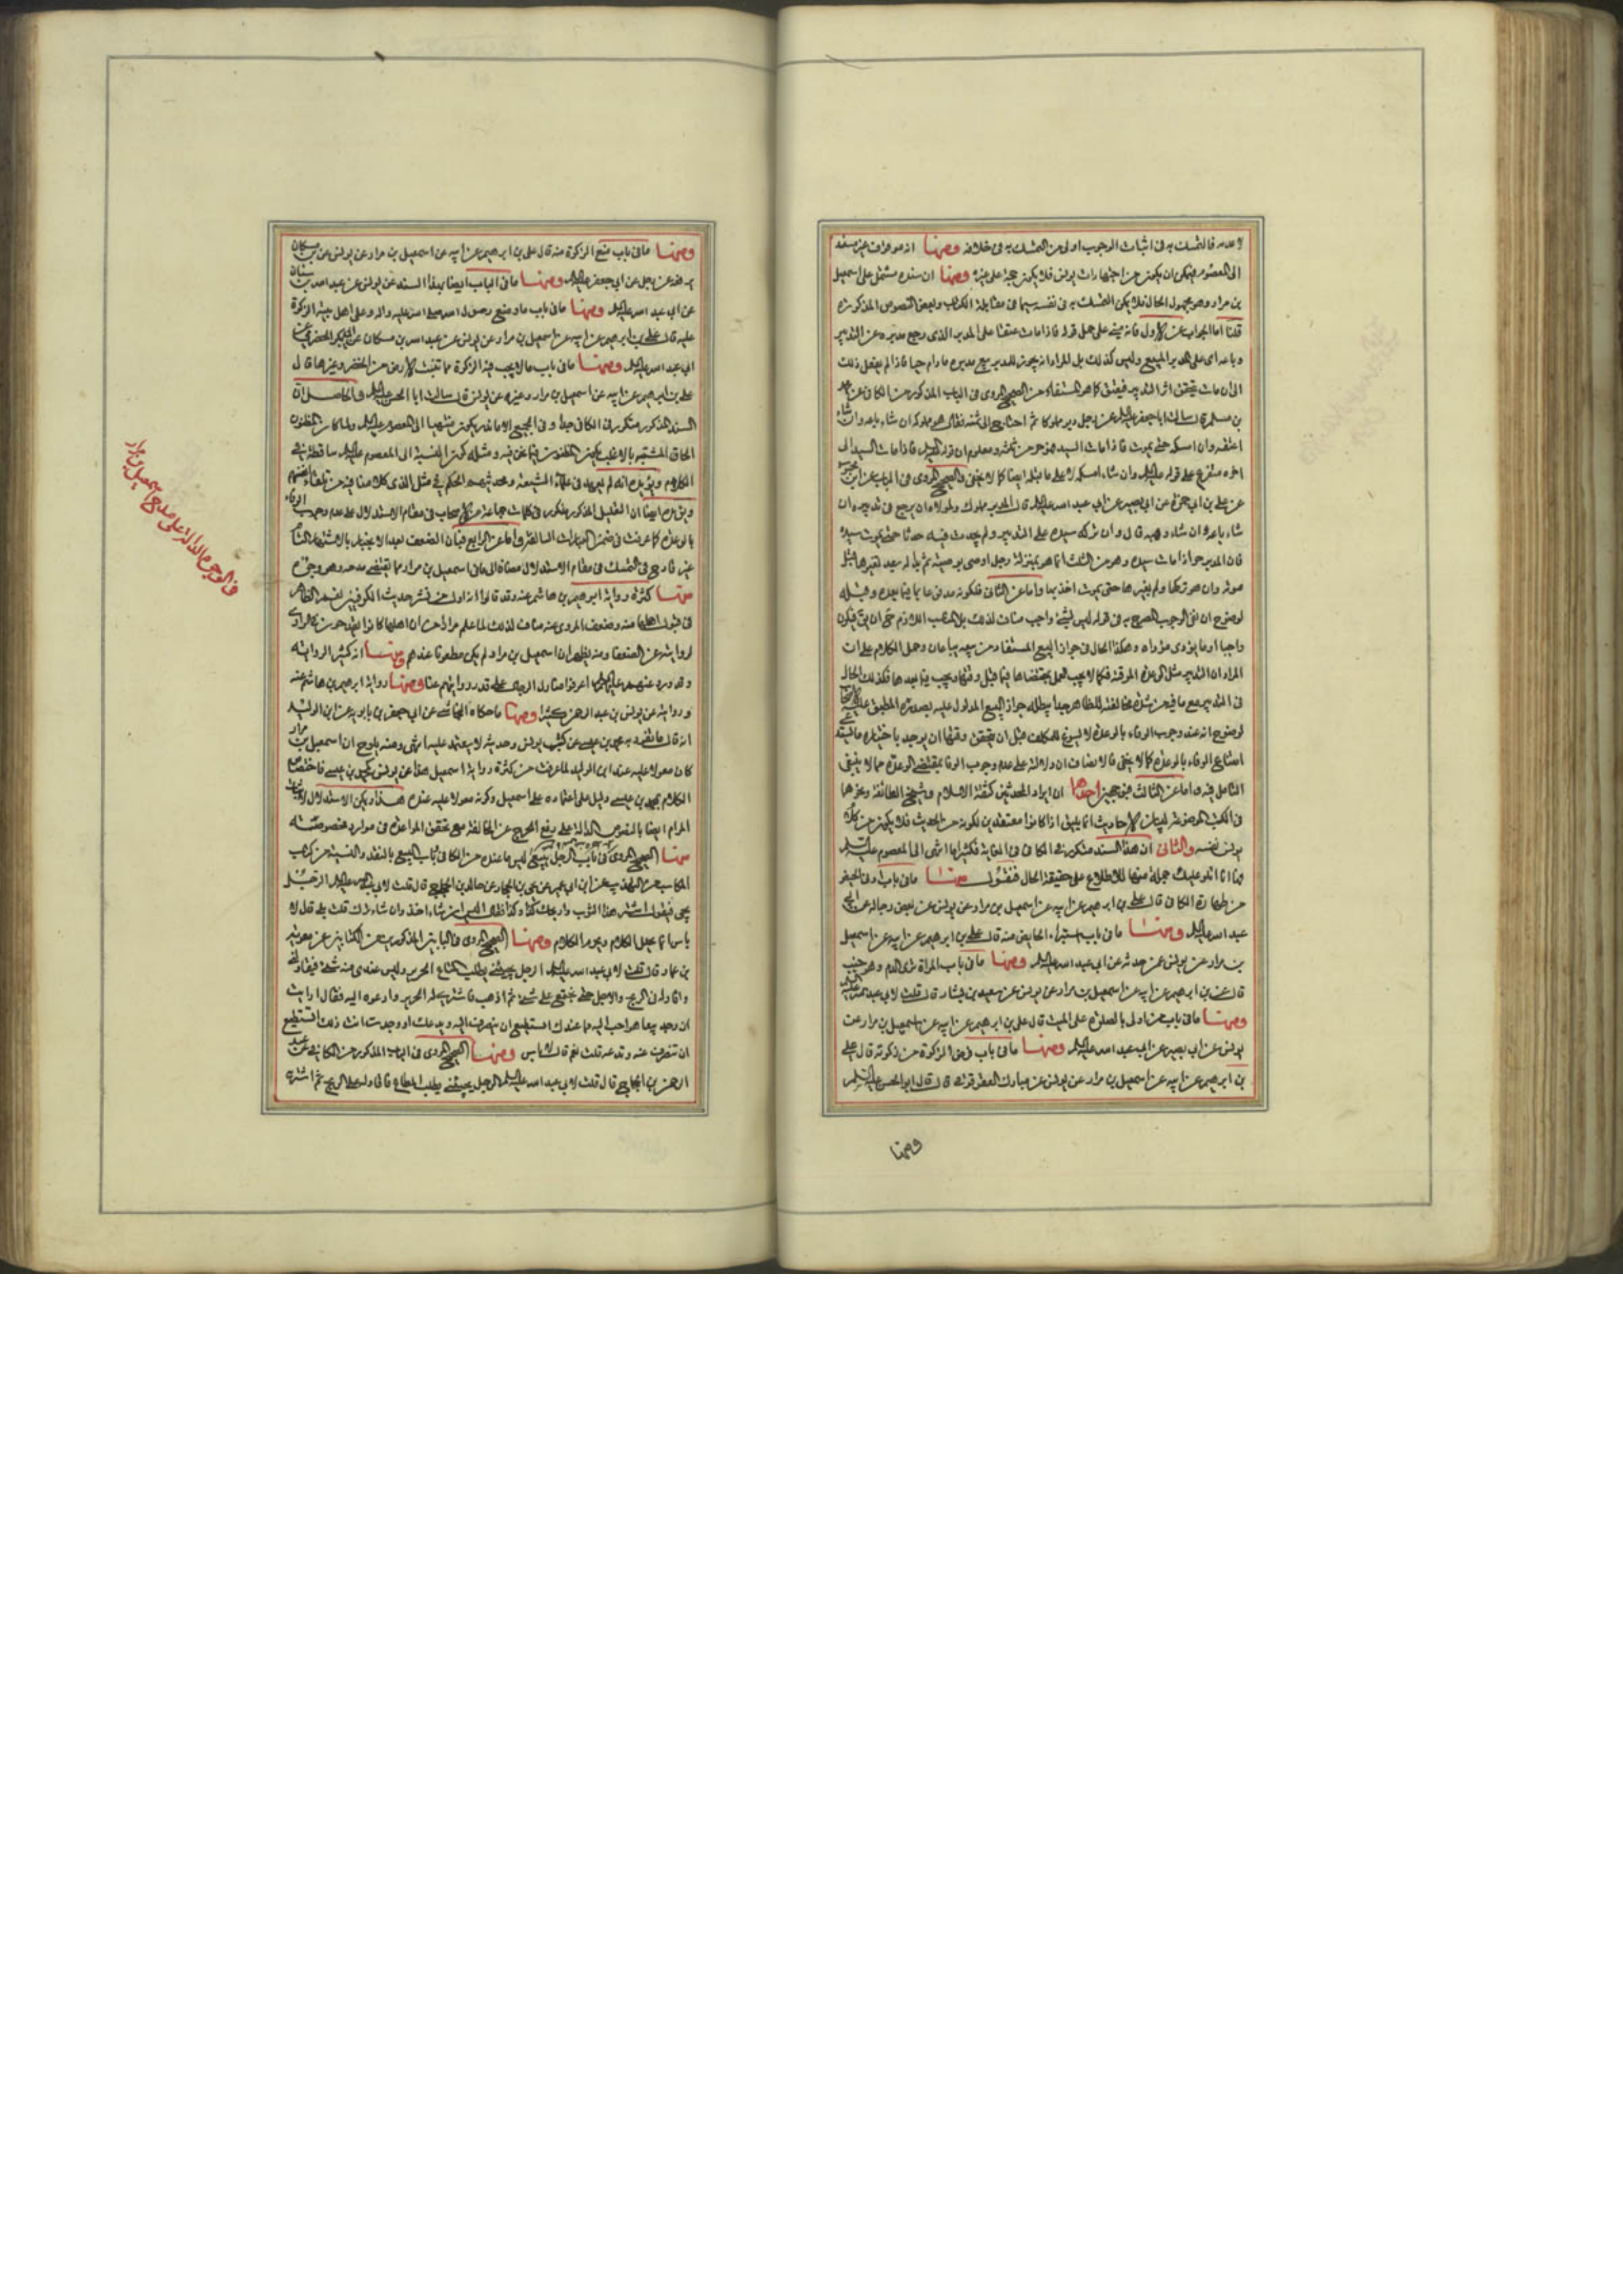 لا عدمه فالتمسك به فى اثبات الوجوب اولى من التمسك به فى خلافه ومنها انه موقوف غير مسند
الى المعصوم فيمكن ان يكون من اجتهادات يونس فلا يكون حجة على غيره ومنها ان سنده مشتمل على اسمعيل
بن مرار وهو مجهول الحال فلا يمكن التمسك به فى نفسه سيما فى مقابلة الكتاب وبعض النصوص المذكورة
قلنا اما الجواب عن الاول فانه مبنى على حمل قوله فاذا مات عتقا على المدبر الذى رجع مدبره عن التدبير
وباعه اى على المدبر المبيع وليس كذلك بل المراد انه يجوز للمدبر بيع مدبره ما دام حيا فاذا لم يفعل ذلك
الى ان مات يتحقق اثر التدبير فيعتق كما هو المستفاد من الصحيح المروى فى الباب المذكور من الكافى عن محمد
بن مسلم قال سالت ابا جعفر عليه السلام عن رجل دبر مملوكا ثم احتاج الى ثمنه فقال هو مملوكه ان شاء باعه وان شاء
اعتقه وان امسكه حتى يموت فاذا مات السيد فهو حر من ثلثه ومعلوم ان قوله عليه السلام فاذا مات السيد الى
اخره متفرع على قوله عليه السلام وان شاء امسكه لا على ما قبله ايضا كما لا يخفى والصحيح المروى فى الباب عن ابن
عن على بن ابى حمزة عن ابى بصير عن ابى عبد الله عليه السلام قال المدبر مملوك ولمولاه ان يرجع فى تدبيره ان
شاء باعه وان شاء وهبه قال وان تركه سيده على التدبير ولم يحدث فيه حدثا حتى يموت سيده
فان المدبر حر اذا مات سيده وهو من الثلث انما هو بمنزلة رجل اوصى بوصية ثم بدا له بعد تغييرها قبل
موته وان هو تركها ولم يغيرها حتى يموت اخذ بها واما عن الثانى فلكونه مدفوعا بما بعده وقبله
لوضوح ان نفى الوجوب المصرح به فى قوله ليس بشئ واجب مناف لذلك
واجبا او ما يؤدى مؤداه وهكذا الحال فى جواز البيع المستفاد من وحمل الكلام على ان
المراد ان التدبير مثل الوعدة الموقتة فكما لا يجب العمل بمقتضاها فيما قبل وقتها ويجب فيما بعدها فكذلك الحال
فى التدبير مع ما فيه من شدة مخالفته للظاهر جدا يبطله جواز البيع المدلول عليه بصدره المطبق عليه
لوضوح انه عند وجوب الوفاء بالوعدة لا يسوغ للمكلف قبل ان يتحقق وقتها ان يوجد باختياره ما
امتناع الوفاء بالوعدة كما لا يخفى فالانصاف ان دلالته على عدم وجوب الوفا بمقتضى الوعدة مما لا ينبغى
التامل فيه واما عن الثالث فبوجهين احدهما ان ايراد المحدثين كثقة الاسلام وشيخ الطائفة ونحوهما
فى الكتب الموضوعة لبيان الاحاديث انما يليق اذا كانوا معتقدين لكونه من الحديث فلا يكون من كلام
يونس نفسه والثانى ان هذا السند متكرر فى الكافى فى الغاية فكثيرا ما انتهى الى المعصوم عليه السلم
وها انا اتلو عليك جملة منها للاطلاع على حقيقة الحال فنقول منها ما فى باب
من طهارة الكافى قال على بن ابرهيم عن ابيه عن اسمعيل بن مرار عن يونس عن بعض رجاله عن ابى
عبد الله عليه السلم ومنها ما فى باب استبراء الحايض منه قال على بن ابرهيم عن ابيه عن اسمعيل
بن مرار عن يونس عمن حدثه عن ابى عبد الله عليه السلم ومنها ما فى باب المراة ترى الدم وهى جنب
قال على بن ابرهيم عن ابيه عن اسمعيل بن مرار عن يونس عن سعيد بن يسار قال قلت لابى عبد الله عليه
ومنها ما فى باب من اولى بالصلوة على الميت قال على بن ابرهيم عن ابيه عن اسمعيل بن مرار عن
يونس عن ابى بصير عن ابى عبد الله عليه السلم ومنها ما فى باب فرض الزكوة من زكوته قال على
بن ابرهيم عن ابيه عن اسمعيل بن مرار عن يونس عن مبارك العقرقوفى قال قال ابو الحسن عليه السلم
ومنها
ومنها ما فى باب منع الزكوة منه قال على بن ابرهيم عن ابيه عن اسمعيل بن مرار عن يونس عن ابن مسكان
يرفعه عن رجل عن ابى جعفر عليه السلم ومنها ما فى الباب ايضا بهذا السند عن يونس عن عبد الله بن سنان
عن ابى عبد الله عليه السلم ومنها ما فى باب ما وضع رسول الله صلى الله عليه واله وعلى اهل بيته الزكوة
عليه قال على بن ابرهيم عن ابيه عن اسمعيل بن مرار عن يونس عن عبد الله بن مسكان عن ابى بكر الحضرمى عن
ابى عبد الله عليه السلم ومنها ما فى باب ما لا يجب فيه الزكوة مما تنبت الارض من الخضر وغيرها قال
على بن ابرهيم عن ابيه عن اسمعيل بن مرار وغيره عن يونس قال سالت ابا الحسن عليه السلم والحاصل ان
السند المذكور متكرر فى الكافى جدا وفى الجميع الا ما ندر يكون منتهيا الى المعصوم عليه السلم ولما كان المظنون
الحاق المشتبه بالاغلب يكون المظنون فيما نحن فيه ومثله كون النسبة الى المعصوم عليه السلم ساقطة فى
الكلام ويؤيده انه لم يعهد فى علماء الشيعة ومحدثيهم الحكم فى مثل الذى كلامنا فيه من تلقاء انفسهم
ويؤيده ايضا ان التعليل المذكور مذكور فى كلمات جماعة من الاصحاب فى مقام الاستدلال على عدم وجوب الوفاء
بالوعدة كما عرفت فى ضمن العبارات السالفة واما عن الرابع فبان الضعف بعد الانجبار بالاشتهار
غير قادح فى التمسك فى مقام الاستدلال مضافا الى ما فى اسمعيل بن مرار مما يقتضى مدحه وهو وجوه
منها كثرة رواية ابرهيم بن هاشم عنه وقد قالوا انه اول من نشر حديث الكوفيين بقم الظاهر
فى قبول اهلها منه وضعف المروى عنه مناف لذلك لما علم مرارا من ان اهلها كانوا يخرجون الراوى
لروايته عن الضعفا ومنه يظهر ان اسمعيل بن مرار لم يكن مطعونا عندهم ومنها انه كثير الرواية
وقد ورد عنهم عليهم السلم اعرفوا منازل الرجال على قدر رواياتهم عنا ومنها رواية ابرهيم بن هاشم عنه
وروايته عن يونس بن عبد الرحمن كثيرا ومنها ما حكاه النجاشى عن ابى جعفر بن بابويه عن ابن الوليد
انه قال ما تفرد به محمد بن عيسى عن كتب يونس وحديثه لا يعتمد عليه انتهى ومنه يلوح ان اسمعيل بن مرار
كان معولا عليه عند ابن الوليد لما عرفت من كثرة رواية اسمعيل هذا عن يونس كمحمد بن عيسى فاختصاص
الكلام بمحمد بن عيسى دليل على اعتماده على اسمعيل وكونه معولا عليه عنده هذا ويمكن الاستدلال لاثبات
المرام ايضا بالنصوص الدالة على رفع الحرج عن المخالفة مع تحقق المواعدة فى موارد مخصوصة
منها الصحيح المروى فى باب الرجل يبيع ما ليس عنده من الكافى وباب البيع بالنقد والنسية من كتاب
المكاسب من التهذيب عن ابن ابى عمير عن يحيى بن الحجاج عن خالد بن الحجاج قال قلت لابى عبد الله عليه السلم الرجل
يجئ فيقول اشتر هذا الثوب واربحك كذا وكذا فقال اليس ان شاء اخذ وان شاء ترك قلت بلى قال لا
باس انما يحل الكلام ويحرم الكلام ومنها الصحيح المروى فى البابين المذكورين من الكتابين عن معوية
بن عمار قال قلت لابى عبد الله عليه السلم الرجل يجيئنى يطلب المتاع الحرير وليس عندى منه شئ فيقاولنى
واقاوله فى الربح والاجل حتى نجتمع على شئ ثم اذهب فاشترى له الحرير وادعوه اليه فقال ارايت
ان وجد بيعا هو احب اليه مما عندك ايستطيع ان ينصرف اليه ويدعك او وجدت انت ذلك اتستطيع
ان تنصرف عنه وتدعه قلت نعم قال لا باس ومنها الصحيح المروى فى الباب المذكور من الكافى عن عبد
الرحمن بن الحجاج قال قلت لابى عبد الله عليه السلم الرجل يجيئنى يطلب المتاع فاقاوله على الربح ثم اشتريه
فى الوجوه الدالة على مدح اسمعيل بن مرار